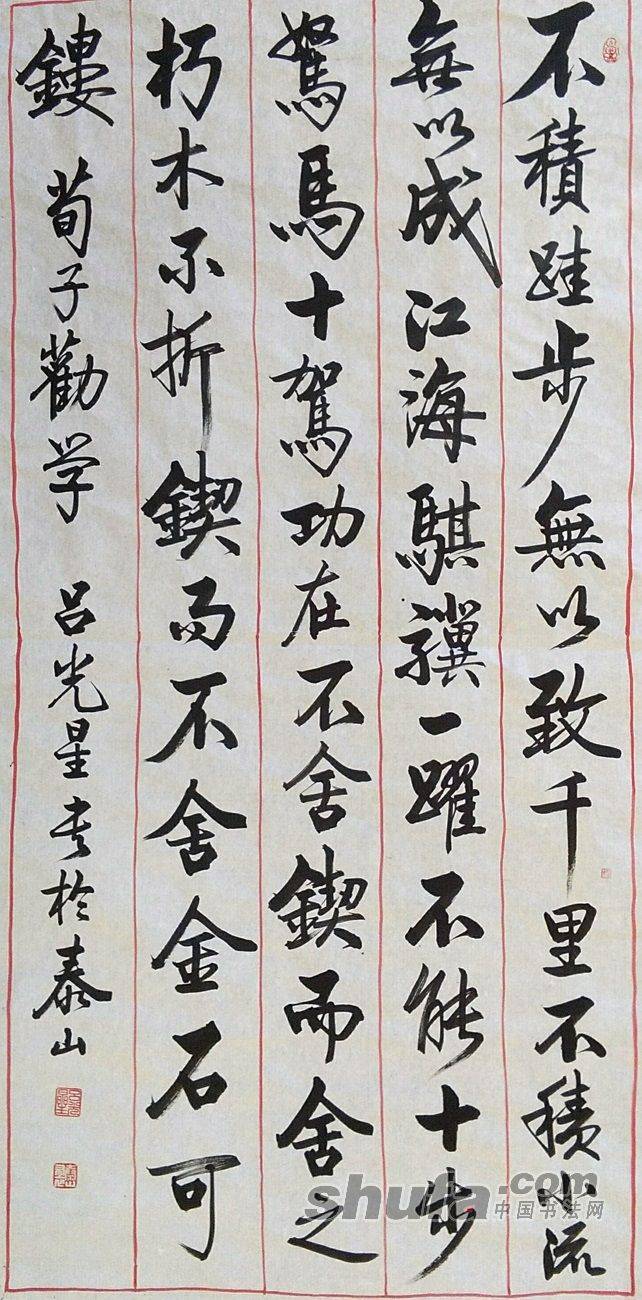 不積跬步無以致千里不積小流
無以成江海騏驥一躍不能十步
駑馬十駕功在不舍鍥而舍之
朽木不折鍥而不舍金石可
鏤 荀子勸学 吕光星书於泰山
shufa.com
中国书法网